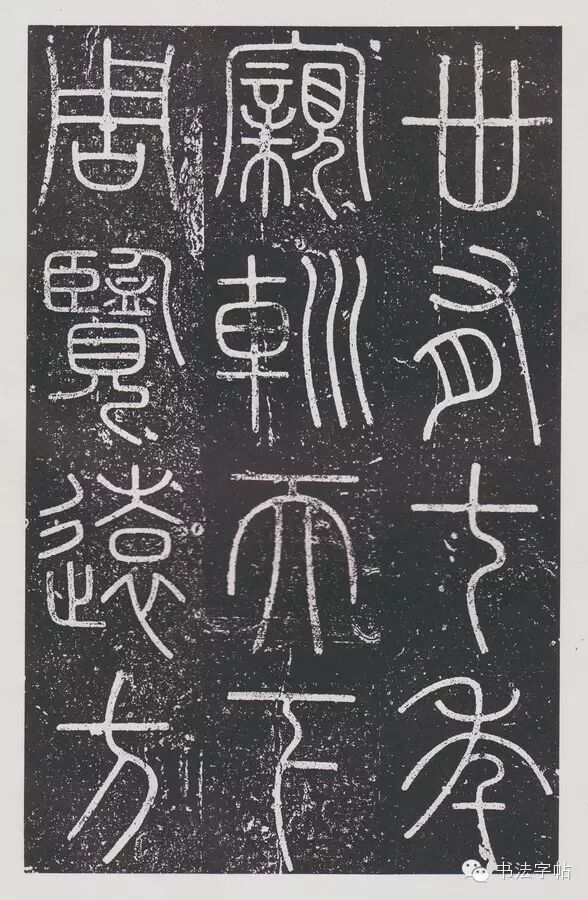 卅有七年
親巡天下
周覽遠方
书法字帖